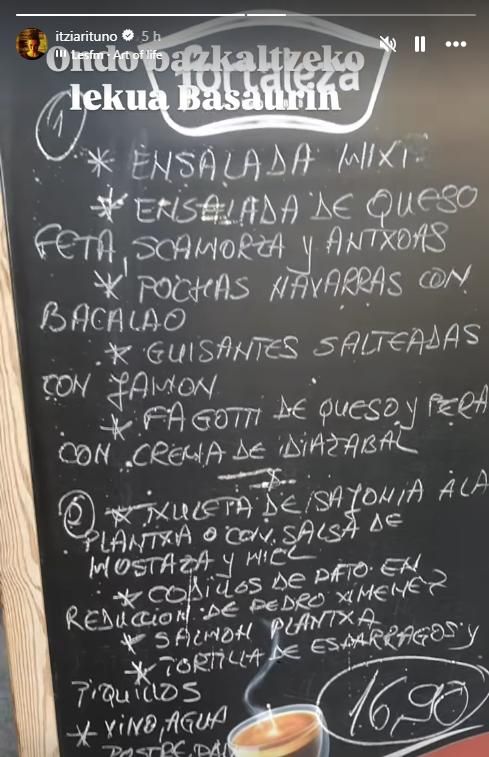 itziarituno 5 h
Lesfm · Art of life
Ondo bazkaltzeko
lekua Basaurin
fortaleza
1
* ENSALADA MIXT
* ENSALADA DE QUESO
FETA, SCAMORZA y ANTXOAS
* POCHAS NAVARRAS CON
BACALAO
* GUISANTES SALTEADAS
CON JAMON
* FAGOTTI DE QUESO y PERA
CON CREMA DE IDIAZABAL
2 * TXULETA DE SAJONIA A LA
PLANTXA O CON SALSA DE
MOSTAZA y MIEL
* CODILLOS DE PATO EN
REDUCCION DE PEDRO XIMENEZ
* SALMON PLANTXA
* TORTILLA DE ESPARRAGOS y
PIQUILLOS
* VINO, AGUA
POSTRE, PAN
16,90